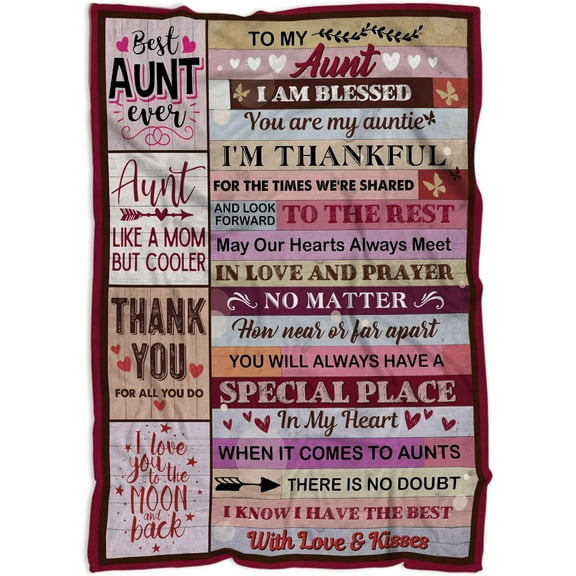 Best
AUNT
ever
Aunt
LIKE A MOM
BUT COOLER
THANK
YOU
FOR ALL YOU DO
I love
you
to the
MOON
and
back
TO MY
Aunt
I AM BLESSED
You are my auntie
I'M THANKFUL
FOR THE TIMES WE'RE SHARED
AND LOOK
FORWARD
TO THE REST
May Our Hearts Always Meet
IN LOVE AND PRAYER
NO MATTER
How near or far apart
YOU WILL ALWAYS HAVE A
SPECIAL PLACE
In My Heart
WHEN IT COMES TO AUNTS
THERE IS NO DOUBT
I KNOW I HAVE THE BEST
With Love & Kisses